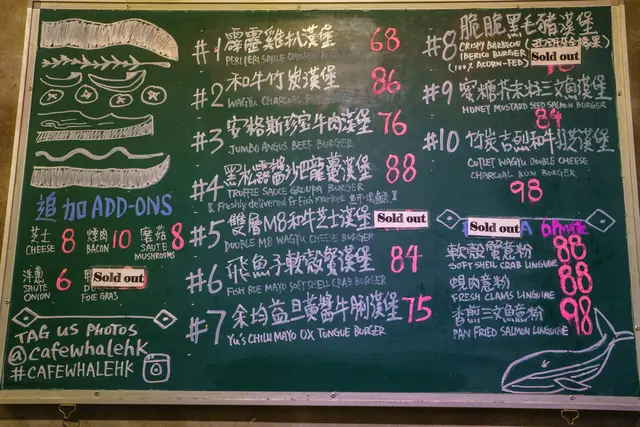 #1 霹靂雞扒漢堡 68
PERI PERI SAUCE CHICKEN BURGER
#2 和牛竹炭漢堡 86
WAGYU CHARCOAL BURGER
#3 安格斯珍寶牛肉漢堡 76
JUMBO ANGUS BEEF BURGER
#4 黑松露醬沙巴龍躉漢堡 88
TRUFFLE SAUCE GROUPA BURGER
[Freshly delivered & Market
#5 雙層M8和牛芝士漢堡 Sold out
DOUBLE M8 WAGYU CHEESE BURGER
#6 飛魚子軟殼蟹漢堡 84
FISH ROE MAYO SOFT SHELL CRAB BURGER
#7 余均益旦黃醬牛脷漢堡 75
YU'S CHILLI MAYO OX TONGUE BURGER
#8 脆脆黑毛豬漢堡
CRISPY BARBECUE
IBERICO BURGER
(100% ACORN-FED)
Sold out
#9 蜜糖芥末籽三文魚漢堡
HONEY MUSTARD SEED SALMON BURGER
84
#10 竹炭吉列和牛芝士漢堡
CUTLET WAGYU DOUBLE CHEESE
CHARCOAL BUN BURGER
98
追加 ADD-ONS
芝士 CHEESE 8
煙肉 BACON 10
磨菇 SAUTE MUSHROOMS 8
洋蔥 SAUTE ONION 6
Sold out
FOIE GRAS
TAG US PHOTOS
@cafewhalehk
#CAFEWHALEHK
Sold out
A 6PM後
軟殼蟹意粉 88
SOFT SHELL CRAB LINGUINE
蜆肉意粉 88
FRESH CLAMS LINGUINE
香煎三文魚意粉 98
PAN FRIED SALMON LINGUINE